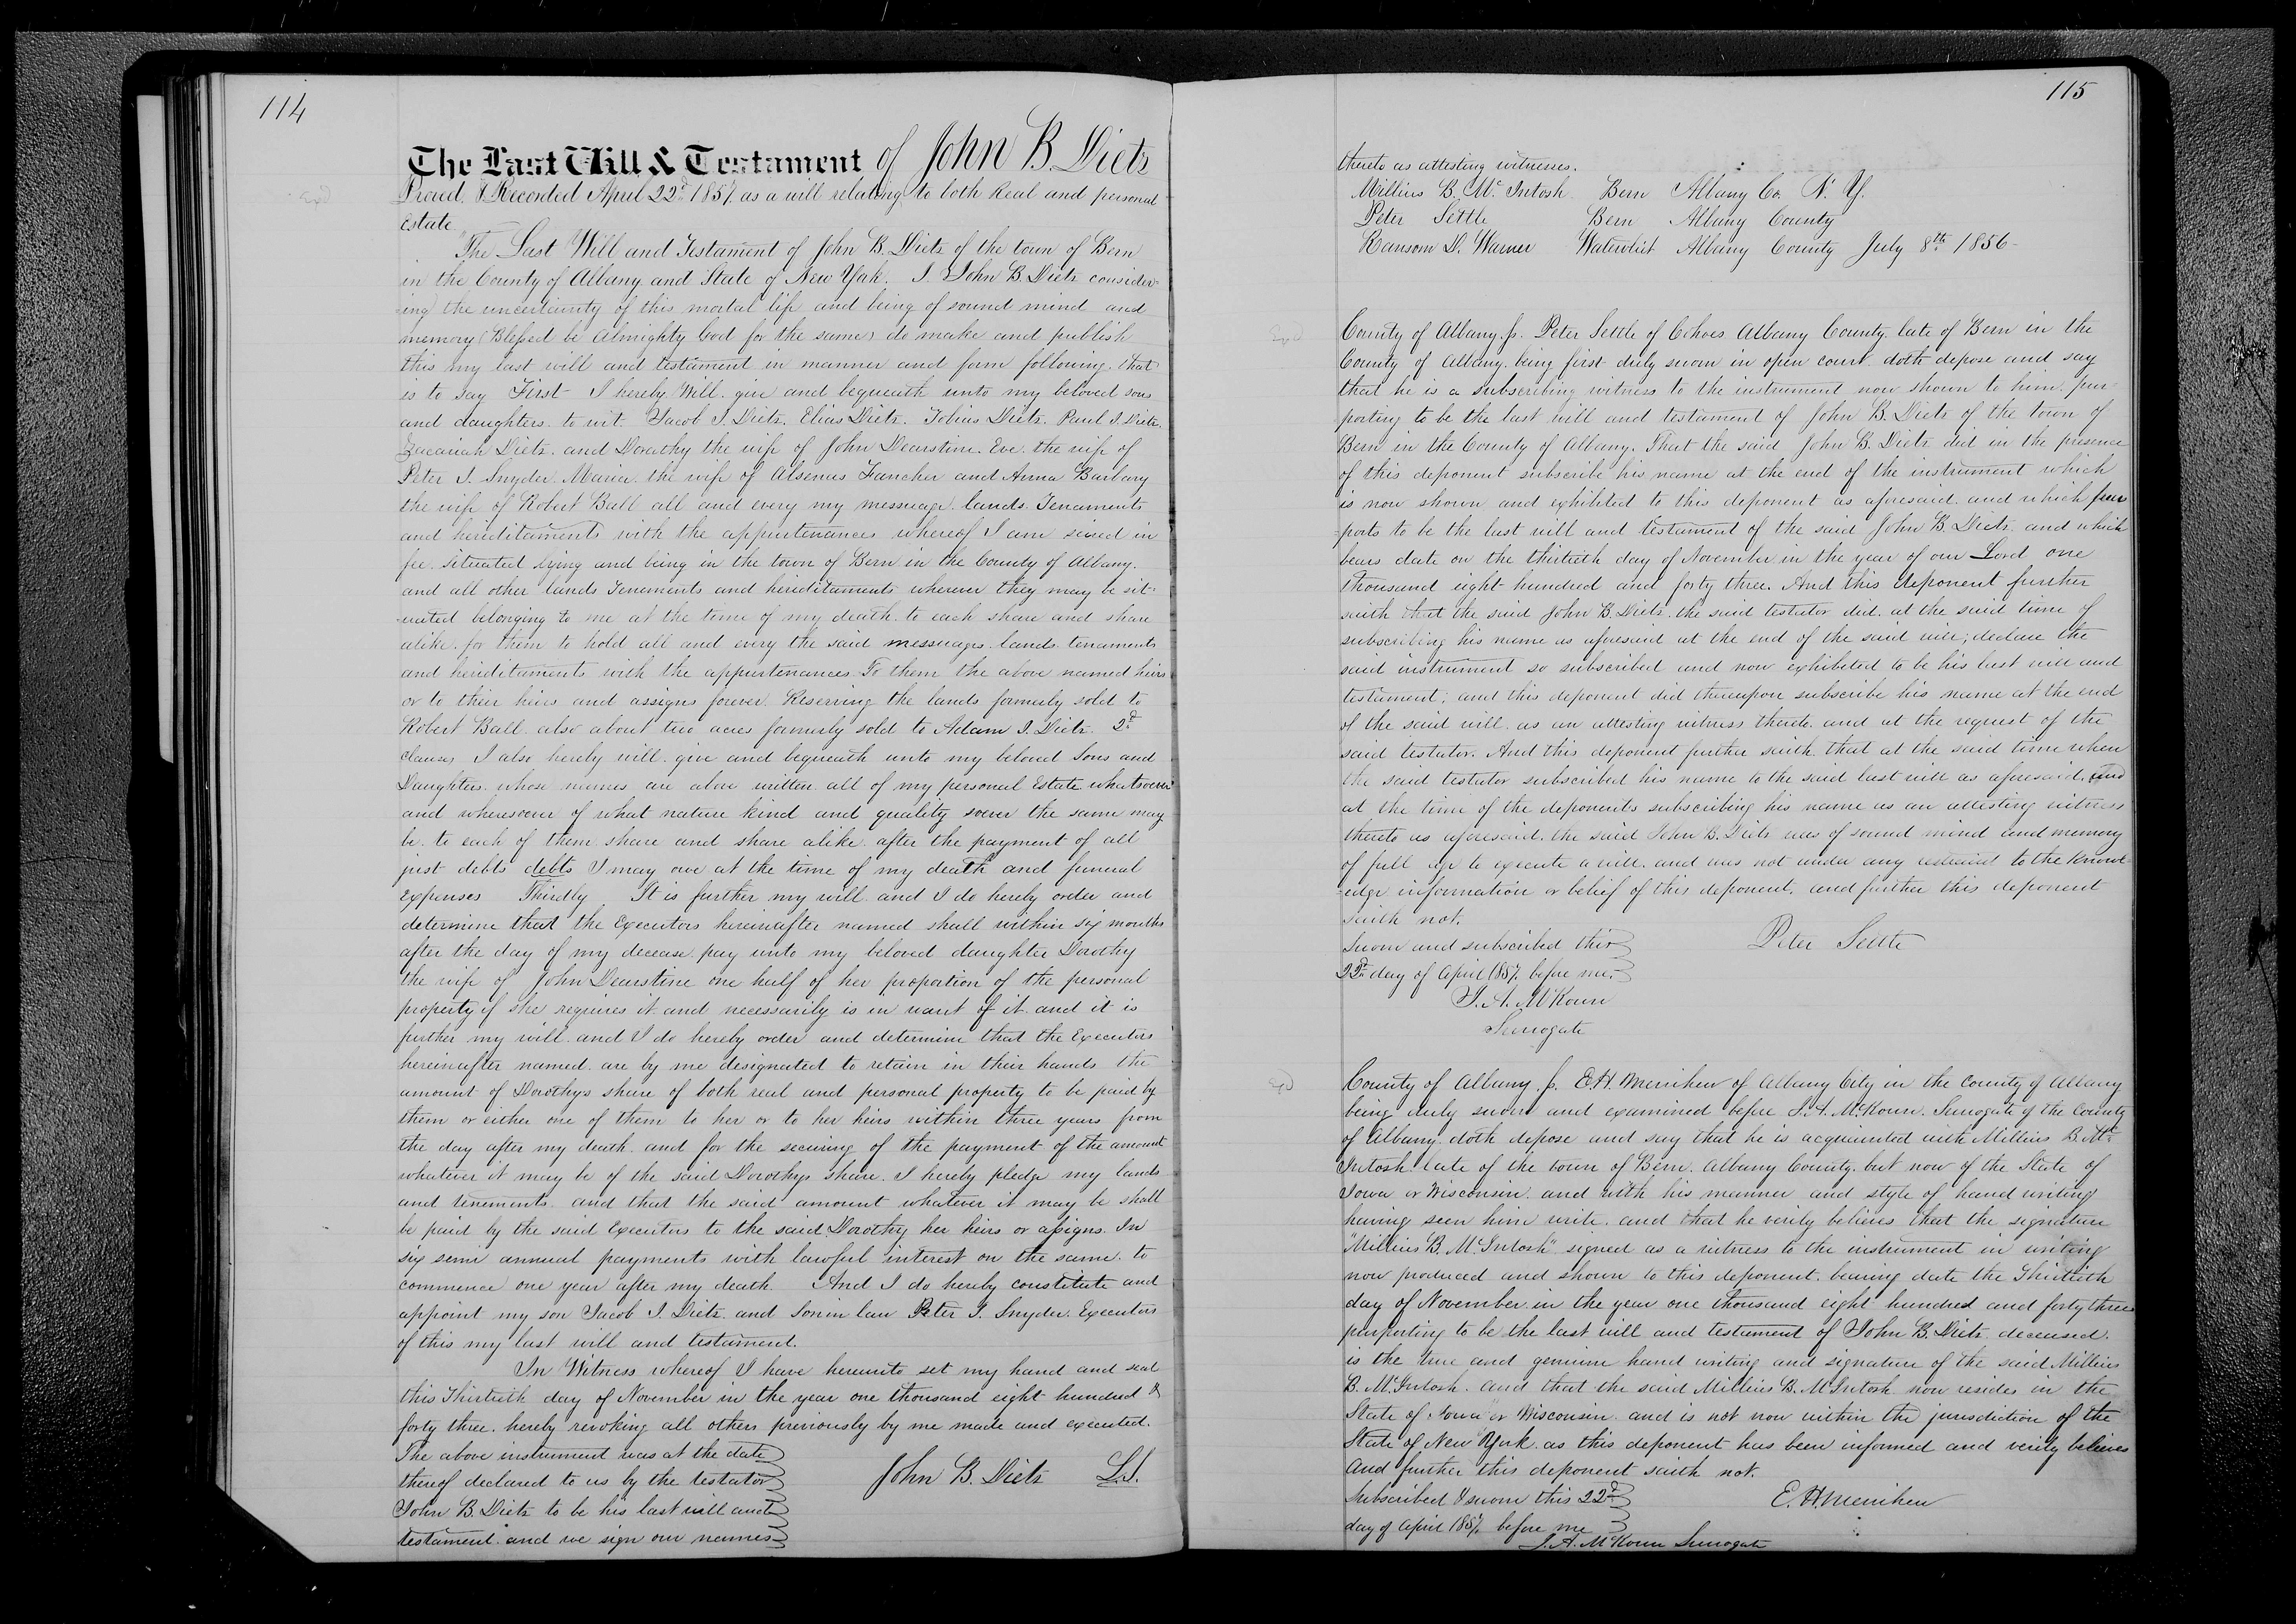 114
The Last Will & Testament of John B. Dietz
Proved & Recorded April 22d 1857. as a will relating to both Real and personal
estate
"The Last Will and Testament of John B. Dietz of the town of Bern
in the County of Albany and State of New York. I John B. Dietz consider-
ing the uncertainty of this mortal life and being of sound mind and
memory (Blessed be Almighty God for the same) do make and publish
this my last will and testament in manner and form following, that
is to say First I hereby Will. give and bequeath unto my beloved sons
and daughters. to wit. Jacob J. Dietz. Elias Dietz. Tobias Dietz. Paul J. Dietz.
Zacariah Dietz. and Dorothy the wife of John Dearstine. Eve. the wife of
Peter J. Snyder. Maria. the wife of Alsenus Fancher and Anna Barbary
the wife of Robert Ball all and every my messuage. lands. Tenaments
and hereditaments with the appurtenances whereof I am seised in
fee. situated lying and being in the town of Bern in the County of Albany.
and all other lands Tenements and hereditaments wherever they may be sit-
uated belonging to me at the time of my death. to each share and share
alike. for them to hold all and every the said messuages. lands. tenaments
and hereditaments with the appurtenances. To them the above named heirs
or to their heirs and assigns forever. Reserving the lands formerly sold to
Robert Ball. also about two acres formerly sold to Adam J. Dietz. 2d
Clause, I also hereby will. give and bequeath unto my beloved Sons and
Daughters. whose names are above written all of my personal Estate whatsoever
and wheresoever of what nature kind and quality soever the same may
be. to each of them share and share alike. after the payment of all
just debts debts I may owe at the time of my death and funeral
expenses Thirdly It is further my will. and I do hereby order and
determine that the Executors hereinafter named shall within six months
after the day of my decease. pay unto my beloved daughter Dorothy
the wife of John Dearstine one half of her proportion of the personal
property if she requires it and necessarily is in want of it. and it is
further my will. and I do hereby order and determine that the Executors
hereinafter named. are by me designated to retain in their hands the
amount of Dorothys share of both real and personal property to be paid by
them or either one of them to her or to her heirs within three years from
the day after my death. and for the securing of the payment of the amount
whatever it may be of the said Dorothys share. I hereby pledge my lands
and tenements. and that the said amount whatever it may be shall
be paid by the said Executors to the said Dorothy her heirs or assigns. In
six semi annual payments with lawful interest on the same. to
commence one year after my death. And I do hereby constitute and
appoint my son Jacob J. Dietz. and Son in law Peter J. Snyder. Executors
of this my last will and testament.
In Witness whereof I have hereunto set my hand and seal
this Thirtieth day of November in the year one thousand eight hundred &
forty three. hereby revoking all others previously by me made and executed.
The above instrument was at the date
thereof declared to us by the testator
John B. Dietz to be his last will and
testament. and we sign our names
John B. Dietz L.S.
115
thereto as attesting witnesses.
Millius B. McIntosh Bern Albany Co. N. Y.
Peter Settle Bern Albany County
Ransom D. Warner Watervliet Albany County July 8th 1856-
County of Albany. ss. Peter Settle of Cohoes Albany County. late of Bern in the
County of Albany. being first duly sworn in open court. doth depose and say
that he is a subscribing witness to the instrument now shown to him. pur-
porting to be the last will and testament of John B. Dietz of the town of
Bern in the County of Albany. That the said John B. Dietz did in the presence
of this deponent subscribe his name at the end of the instrument which
is now shown and exhibited to this deponent as aforesaid. and which pur
-ports to be the last will and testament of the said John B. Dietz. and which
bears date on the thirtieth day of November in the year of our Lord one
thousand eight hundred and forty three. And this deponent further
saith that the said John B. Dietz. the said testator did. at the said time of
subscribing his name as aforesaid at the end of the said will, declare the
said instrument so subscribed and now exhibited to be his last will and
testament; and this deponent did thereupon subscribe his name at the end
of the said will. as an attesting witness thereto. and at the request of the
said testator. And this deponent further saith. that at the said time when
the said testator subscribed his name to the said last will as aforesaid, and
at the time of the deponents subscribing his name as an attesting witness
thereto as aforesaid. the said John B. Dietz was of sound mind and memory
of full age to execute a will. and was not under any restraint to the knowl-
-edge information or belief of this deponent. and further this deponent
saith not.
Sworn and subscribed this
22d day of April 1857. before me.
Peter Settle
J. A. McKoun
Surrogate
County of Albany. ss. E. H. Merrihew of Albany City in the County of Albany
being duly sworn and examined before J. A. McKoun. Surrogate of the County
of Albany. doth depose and say that he is acquainted with Millius B. Mc
Intosh late of the town of Bern. Albany County. but now of the State of
Iowa or Wisconsin. and with his manner and style of hand writing
having seen him write. and that he verily believes that the signature
"Millius B. McIntosh" signed as a witness to the instrument in writing
now produced and shown to this deponent. bearing date the Thirtieth
day of November. in the year one thousand eight hundred and forty three
purporting to be the last will and testament of John B. Dietz. deceased.
is the true and genuine hand writing and signature of the said Millius
B. McIntosh. and that the said Millius B. McIntosh now resides in the
State of Iowa or Wisconsin. and is not now within the jurisdiction of the
State of New York. as this deponent has been informed and verily believes
And further this deponent saith not.
Subscribed & sworn this 22d
day of April 1857. before me
E. H. Merrihew
J. A. McKoun Surrogate